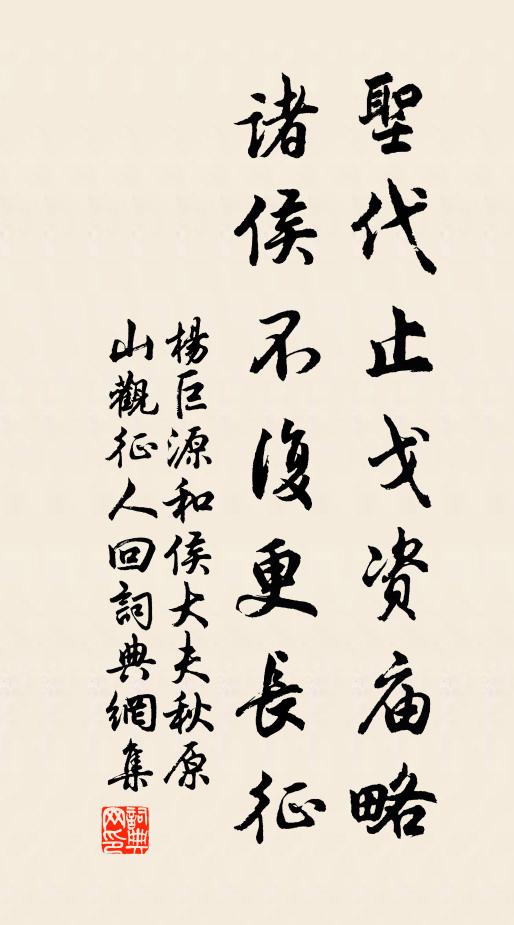 聖代止戈资庙略
諸侯不復更長征
楊巨源和侯大夫秋原
山觀征人回詞典網集
詞典
网印